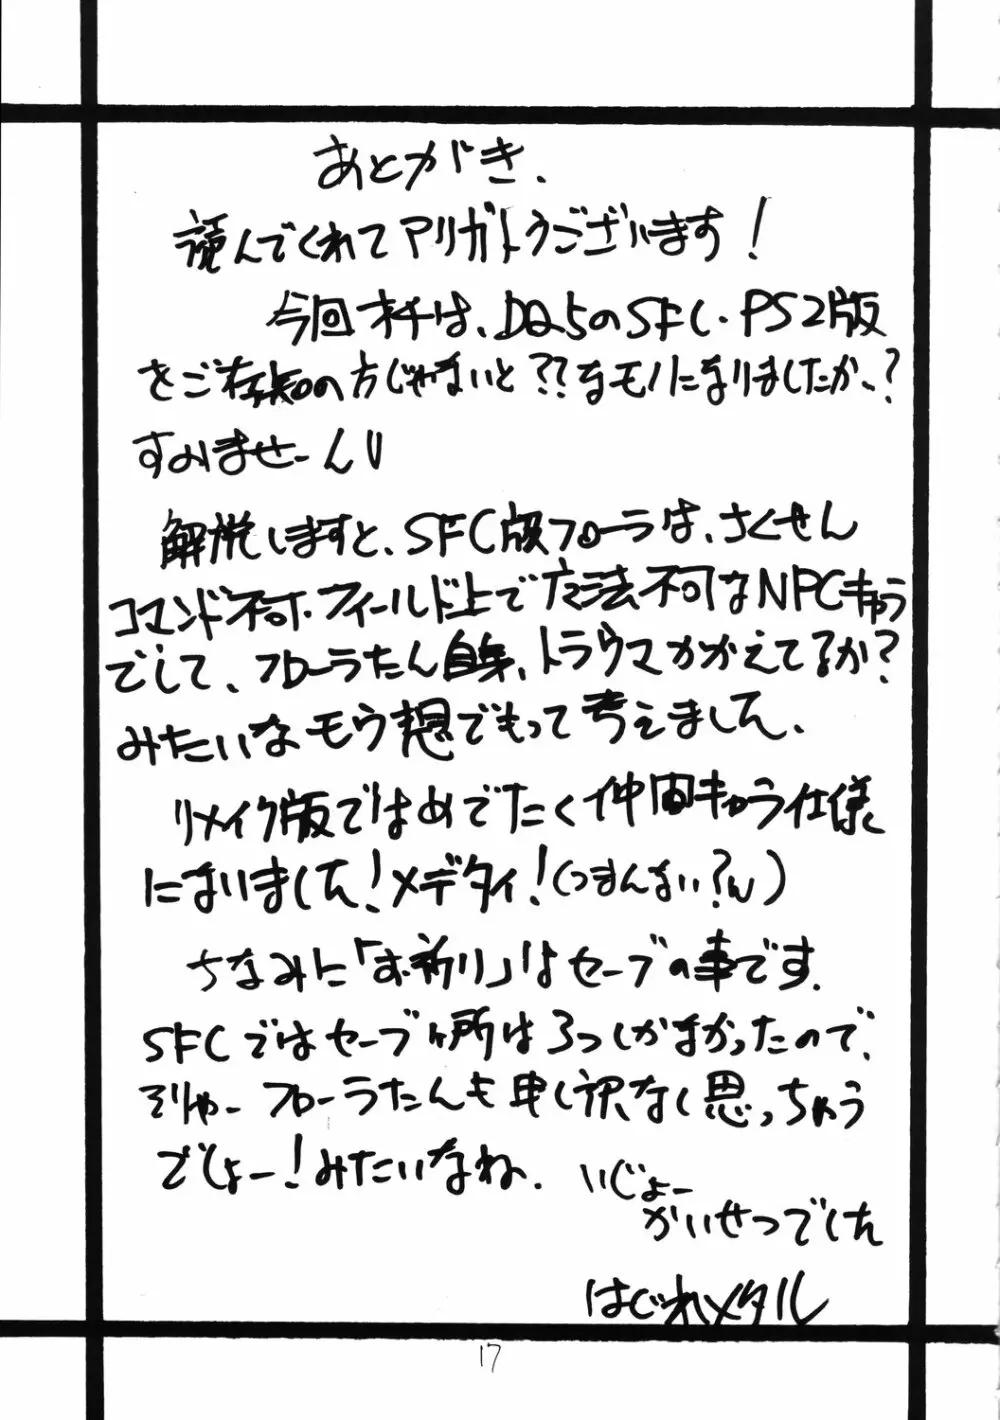 あとがき、
読んでくれてアリガトうございます!
今回オチは、DQ5のSFC・PS2版
をご存知の方じゃないと??なモノになりましたか、?
すみませーん
解説しますと、SFC版フローラは、さくせん
コマンド不可・フィールド上で魔法不可なNPCキャラ
でして、フローラたん自身、トラウマかかえてるか?
みたいなモウ想でもって考えました、
リメイク版ではめでたく仲間キャラ仕様
になりました!メデタイ!(つまんない?)
ちなみに「お祈り」はセーブの事です.
SFCではセーブヶ所は3つしかなかったので、
そりゃーフローラたんも申し訳なく思っちゃう
でしょー!みたいなね.
いじょー
かいせつでした
はぐれメタル
17